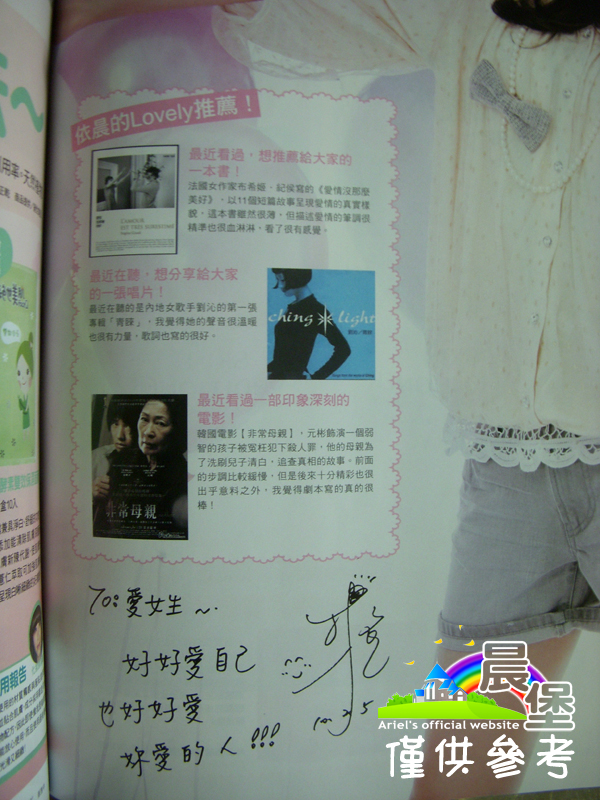 依晨的Lovely推薦！
最近看過，想推薦給大家的
一本書！
法國女作家布希姬．紀侯寫的《愛情沒那麼
美好》，以11個短篇故事呈現愛情的真實樣
貌，這本書雖然很薄，但描述愛情的筆調很
精準也很血淋淋，看了很有感覺。
最近在聽，想分享給大家
的一張唱片！
最近在聽的是內地女歌手劉沁的第一張
專輯「青睞」，我覺得她的聲音很溫暖
也很有力量，歌詞也寫的很好。
ching light
最近看過一部印象深刻的
電影！
韓國電影【非常母親】，元彬飾演一個弱
智的孩子被冤枉犯下殺人罪，他的母親為
了洗刷兒子清白，追查真相的故事。前面
的步調比較緩慢，但是後來十分精彩也很
出乎意料之外，我覺得劇本寫的真的很
棒！
非常母親
To:愛女生～
好好愛自己
也好好愛
妳愛的人!!!
晨堡
Ariel's official website
僅供參考
盒10入
用報告